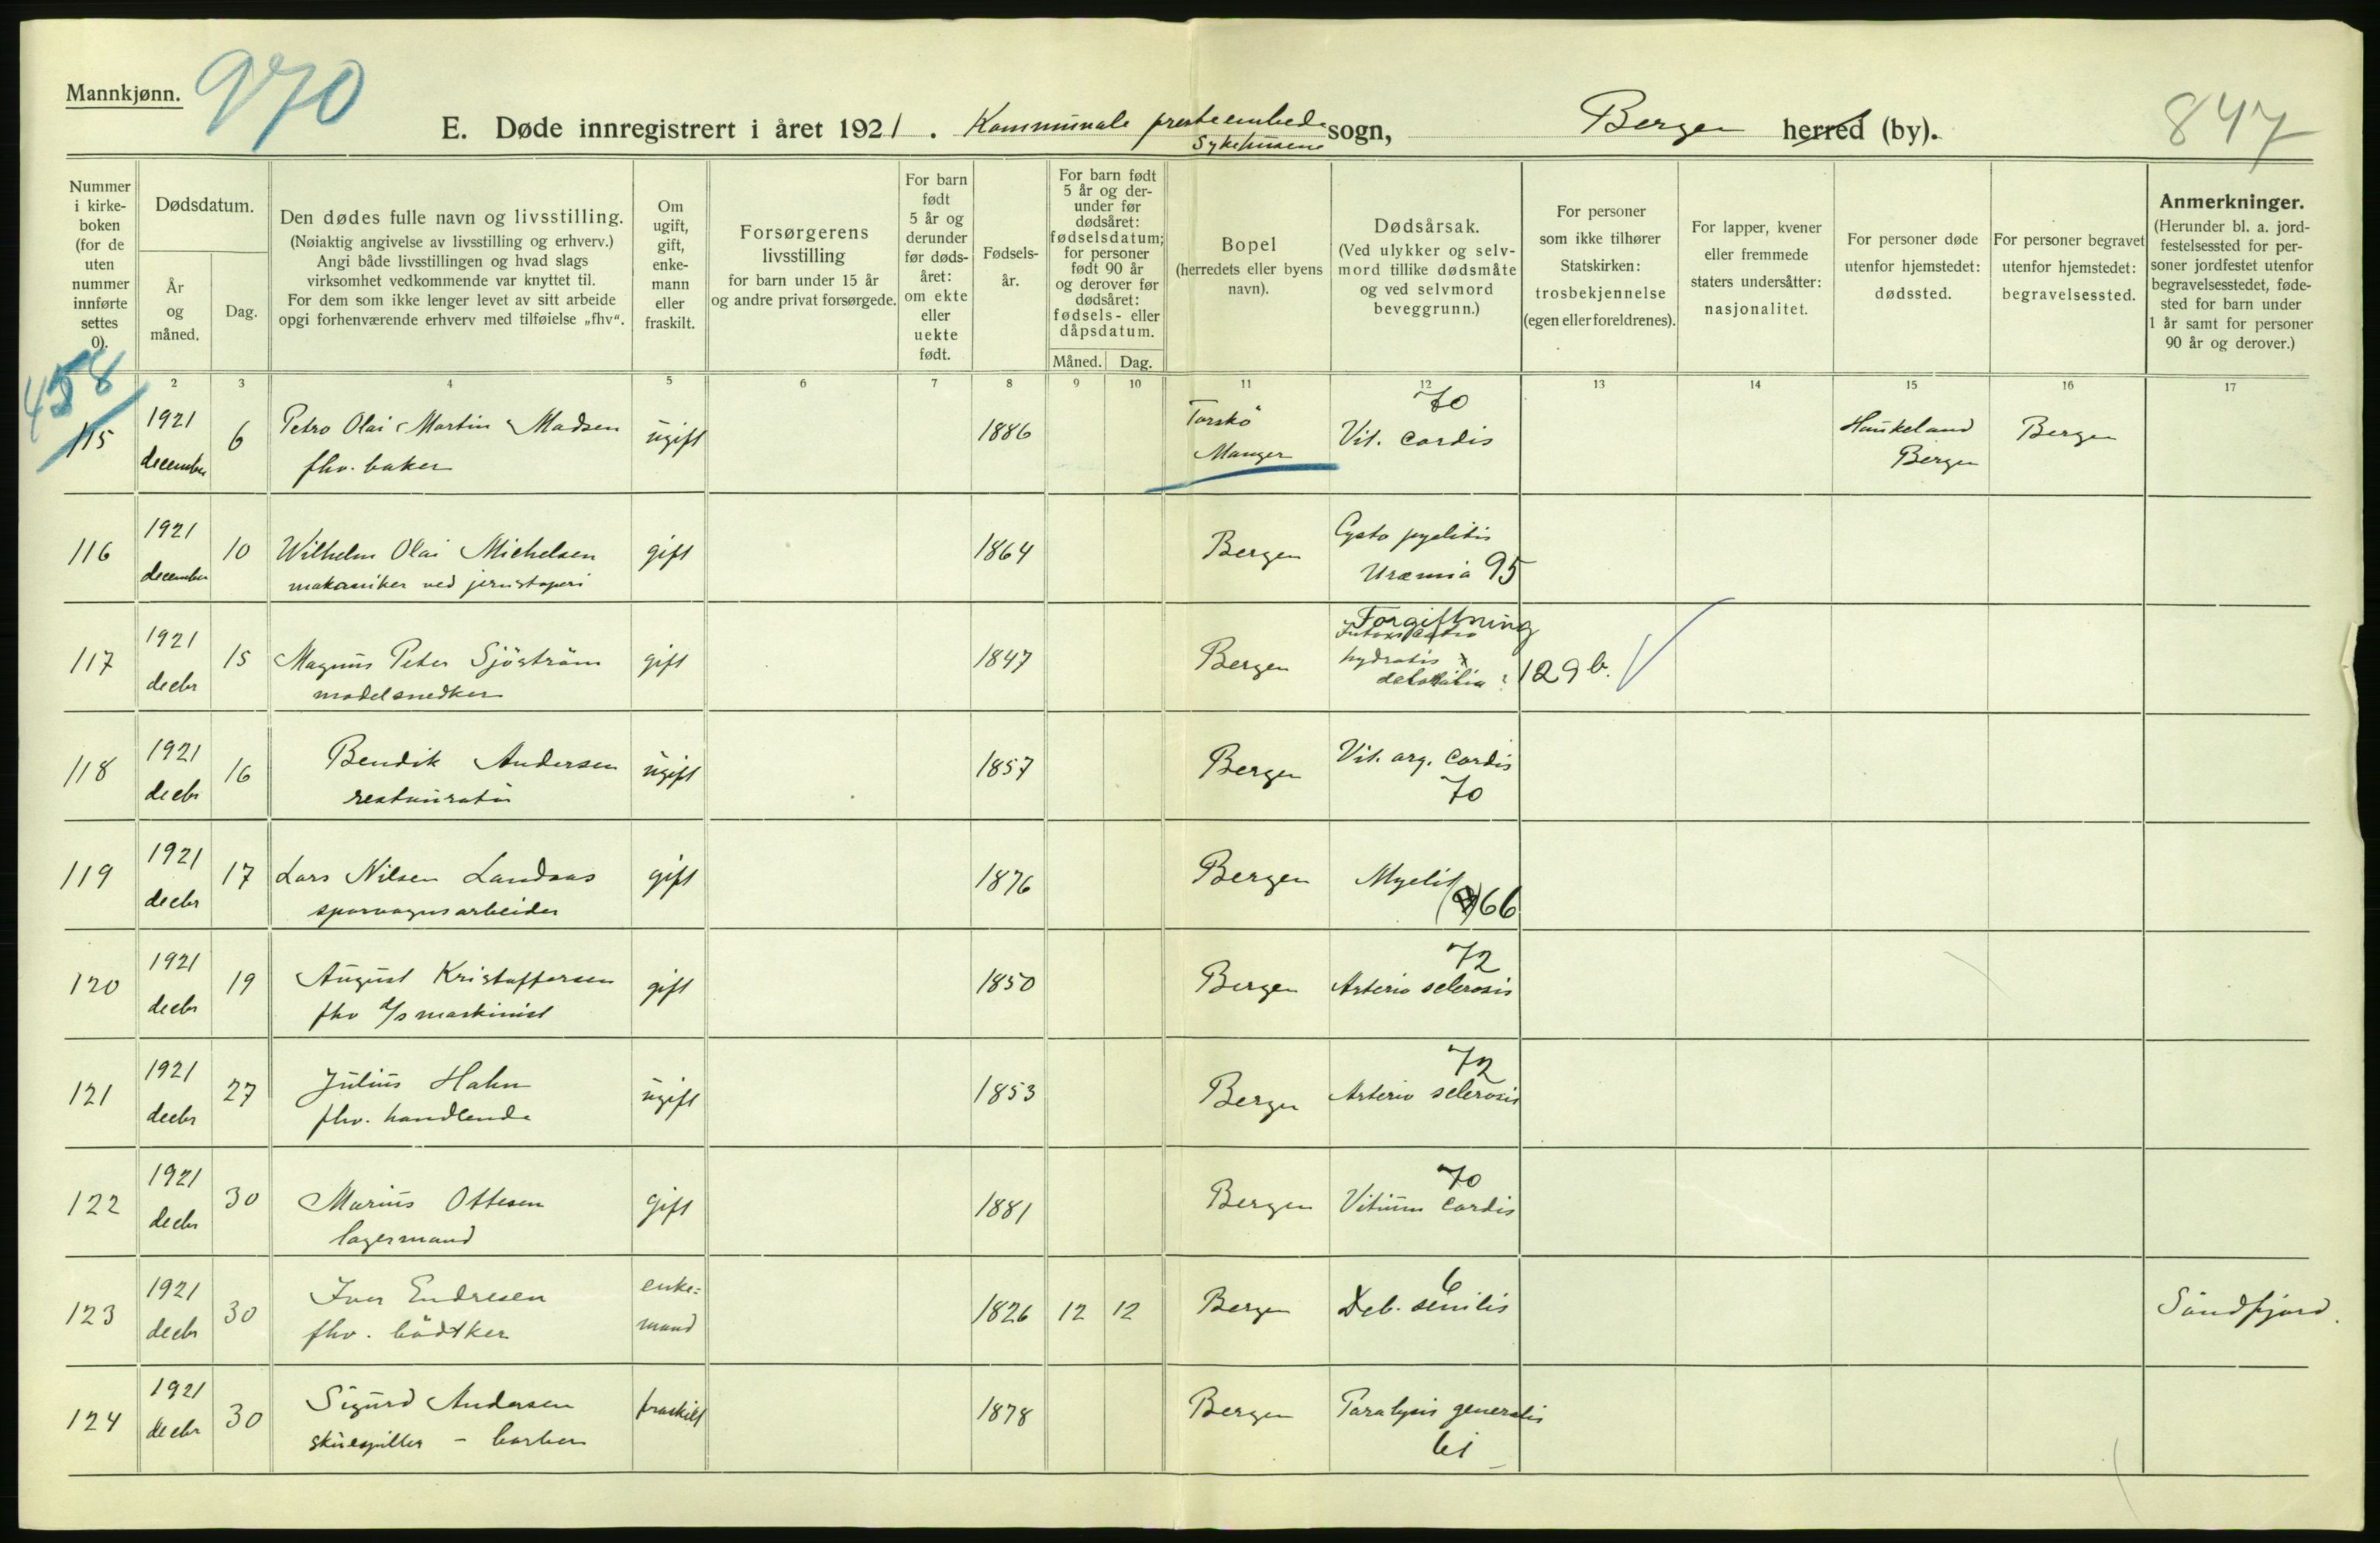 Mannkjønn.
970
E. Døde innregistrert i året 1921. Kommunale presteembede sogn, Bergen herred (by).
Sykehusene
847
Nummer
i kirke-
boken
(for de
uten
nummer
innførte
settes
0).
Dødsdatum.
År
og
måned.
Dag.
Den dødes fulle navn og livsstilling.
(Nøiaktig angivelse av livsstilling og erhverv.)
Angi både livsstillingen og hvad slags
virksomhet vedkommende var knyttet til.
For dem som ikke lenger levet av sitt arbeide
opgi forhenværende erhverv med tilføielse „fhv“.
Om
ugift,
gift,
enke-
mann
eller
fraskilt.
Forsørgerens
livsstilling
for barn under 15 år
og andre privat forsørgede.
For barn
født
5 år og
derunder
før døds-
året:
om ekte
eller
uekte
født.
Fødsels-
år.
For barn født
5 år og der-
under før
dødsåret:
fødselsdatum;
for personer
født 90 år
og derover før
dødsåret:
fødsels- eller
dåpsdatum.
Måned. Dag.
Bopel
(herredets eller byens
navn).
Dødsårsak.
(Ved ulykker og selv-
mord tillike dødsmåte
og ved selvmord
beveggrunn.)
For personer
som ikke tilhører
Statskirken:
trosbekjennelse
(egen eller foreldrenes).
For lapper, kvener
eller fremmede
staters undersåtter:
nasjonalitet.
For personer døde
utenfor hjemstedet:
dødssted.
For personer begravet
utenfor hjemstedet:
begravelsessted.
Anmerkninger.
(Herunder bl. a. jord-
festelsessted for per-
soner jordfestet utenfor
begravelsesstedet, føde-
sted for barn under
1 år samt for personer
90 år og derover.)
2 3 4 5 6 7 8 9 10 11 12 13 14 15 16 17
458
115 1921 december 6 Petro Olai Martin Madsen ugift 1886 Torskö Vit. cordis 70 Haukeland Bergen
fhv. baker Manger Bergen
116 1921 december 10 Wilhelm Olai Michelsen gift 1864 Bergen Cysto pyelitis
mekaniker ved jernstøperi Uræmia 95
117 1921 decbr 15 Magnus Peter Sjöström gift 1847 Bergen Forgiftning
modelsnedker hydratis 129 b.
118 1921 decbr 16 Bendik Andersen ugift 1857 Bergen Vit. org. cordis
restauratör 70
119 1921 decbr 17 Lars Nilsen Landaas gift 1876 Bergen Myelit
sporvognsarbeider 66
120 1921 decbr 19 August Kristoffersen gift 1850 Bergen 72
fhv d/s maskinist Arterio sclerosis
121 1921 decbr 27 Julius Hahn ugift 1853 Bergen 72
fhv. handlende Arterio sclerosis
122 1921 decbr 30 Marius Ottesen gift 1881 Bergen 70
lagermand Vitium cordis
123 1921 decbr 30 Iver Endresen enke= 1826 12 12 Bergen 6 Söndfjord.
fhv. bödtker mand Deb. senilis
124 1921 decbr 30 Sigurd Andersen fraskilt 1878 Bergen Paralysis generalis
skuespiller - barber 61